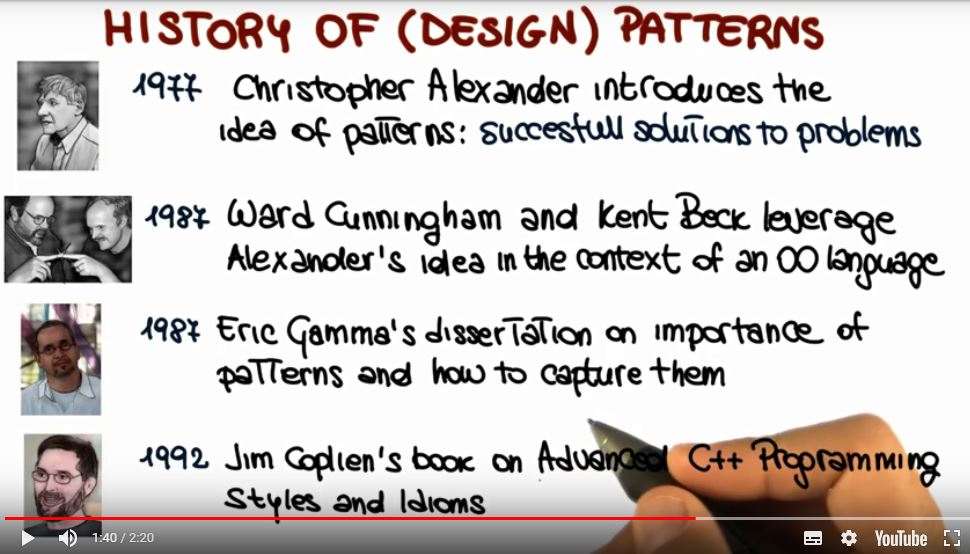 HISTORY OF (DESIGN) PATTERNS
1977 Christopher Alexander introduces the
idea of patterns: succesfull solutions to problems
1987 Ward Cunningham and Kent Beck leverage
Alexander's idea in the context of an OO language
1987 Eric Gamma's dissertation on importance of
patterns and how to capture them
1992 Jim Coplien's book on Advanced C++ Programming
Styles and Idioms
1:40 / 2:20 YouTube